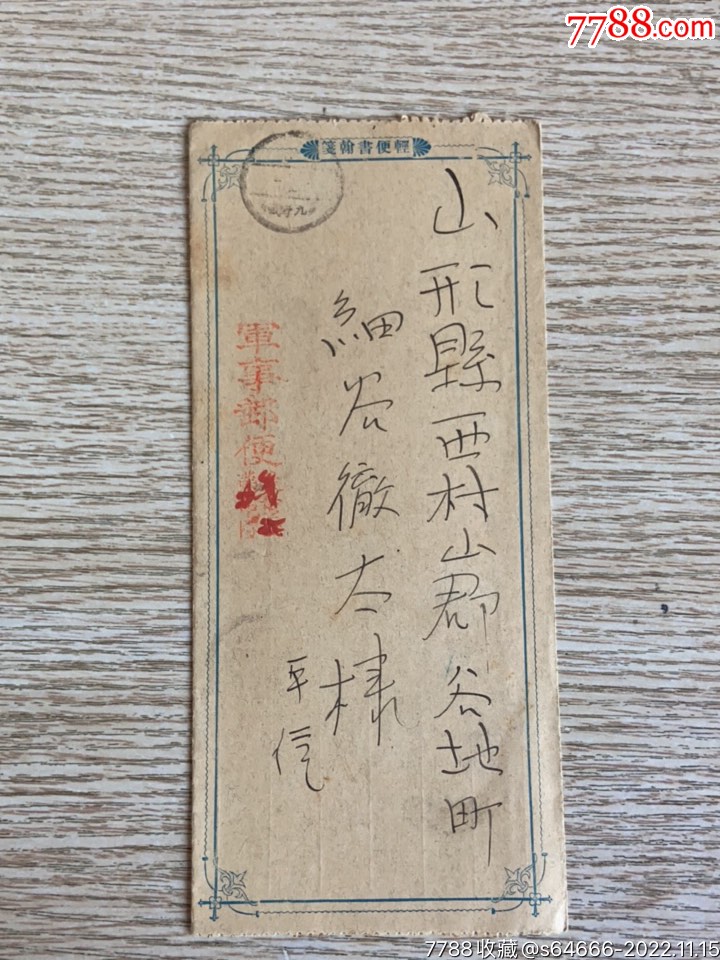 7788.com
輕便書翰箋
山形縣西村山郡谷地町
細谷徹太様
平信
軍事郵便
7788收藏@s64666-2022.11.15